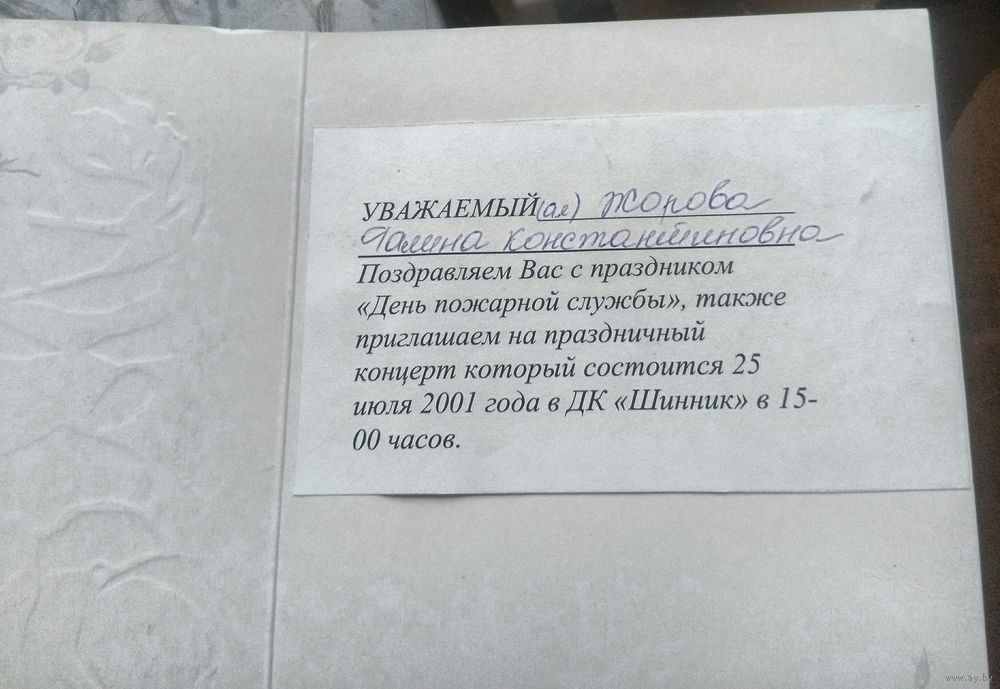 УВАЖАЕМЫЙ(ая) Жорова
Галина Константиновна
Поздравляем Вас с праздником
«День пожарной службы», также
приглашаем на праздничный
концерт который состоится 25
июля 2001 года в ДК «Шинник» в 15-
00 часов.
www.ay.by